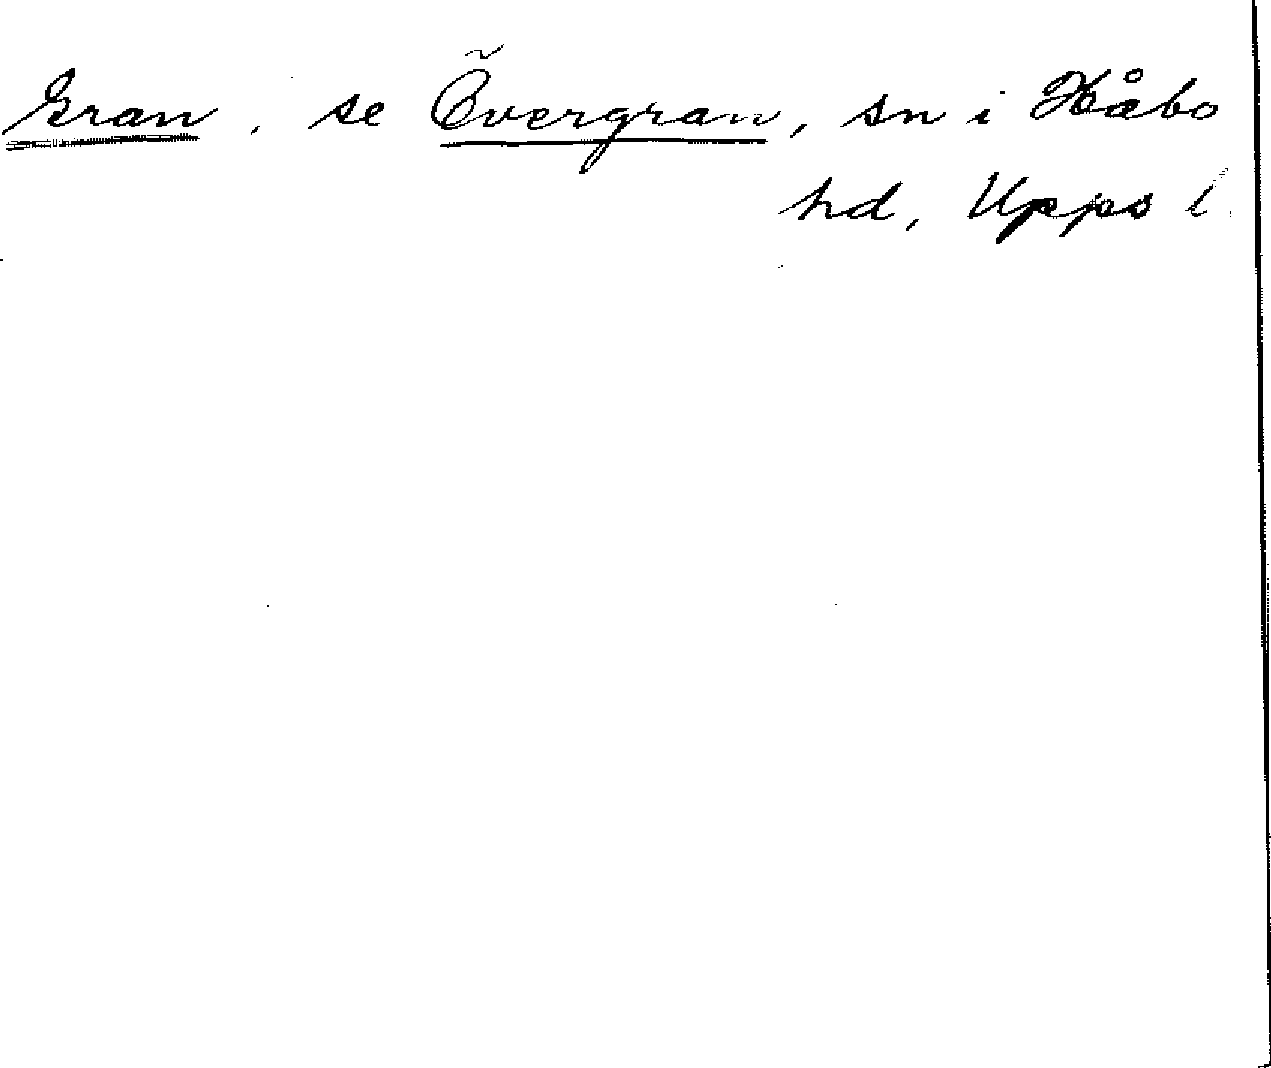 Gran, se Övergran, sn i Håbo
hd, Upps l.